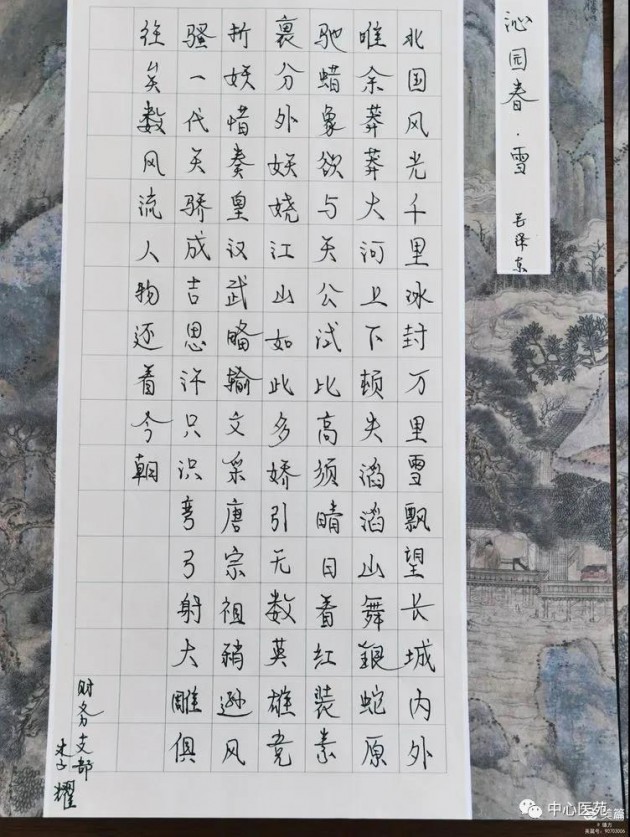 沁园春·雪
毛泽东
北国风光千里冰封万里雪飘望长城内外
唯余莽莽大河上下顿失滔滔山舞銀蛇原
驰蜡象欲与天公试比高须晴日看红装素
裹分外妖娆江山如此多娇引无数英雄竞
折妖惜秦皇汉武略输文采唐宗祖稍逊风
骚一代天骄成吉思汗只识弯弓射大雕俱
往矣数风流人物还看今朝
财务支部
耀
中心医苑
美篇